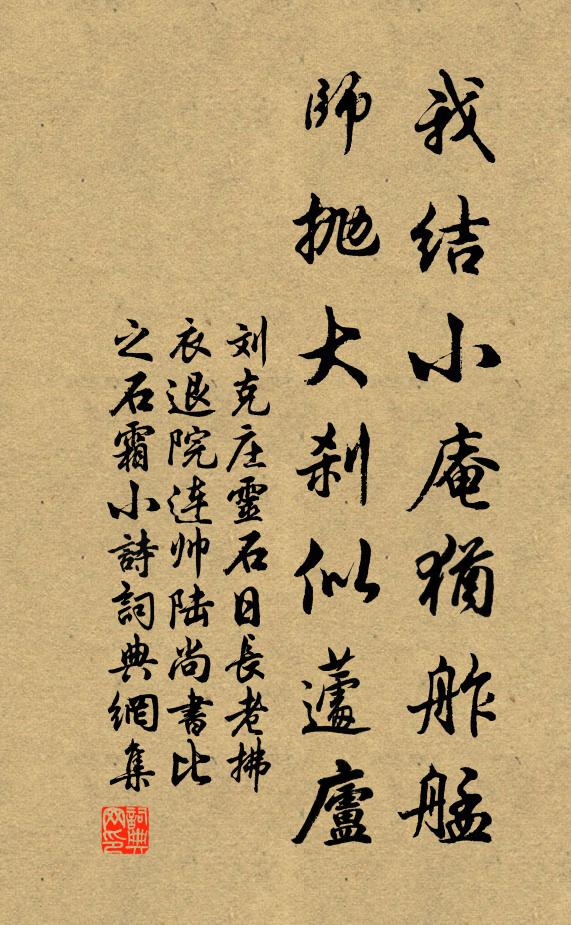 我结小庵犹舴艋
師抛大刹似蘧廬
刘克庄靈石日長老拂
衣退院连帅陆尚書比
之石霜小詩詞典網集
詞典网印